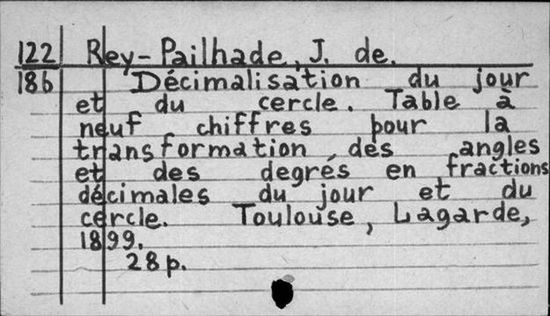 122 Rey-Pailhade, J. de.
186 Décimalisation du jour
et du cercle. Table à
neuf chiffres pour la
transformation des angles
et des degrés en fractions
décimales du jour et du
cercle. Toulouse, Lagarde,
1899.
28 p.